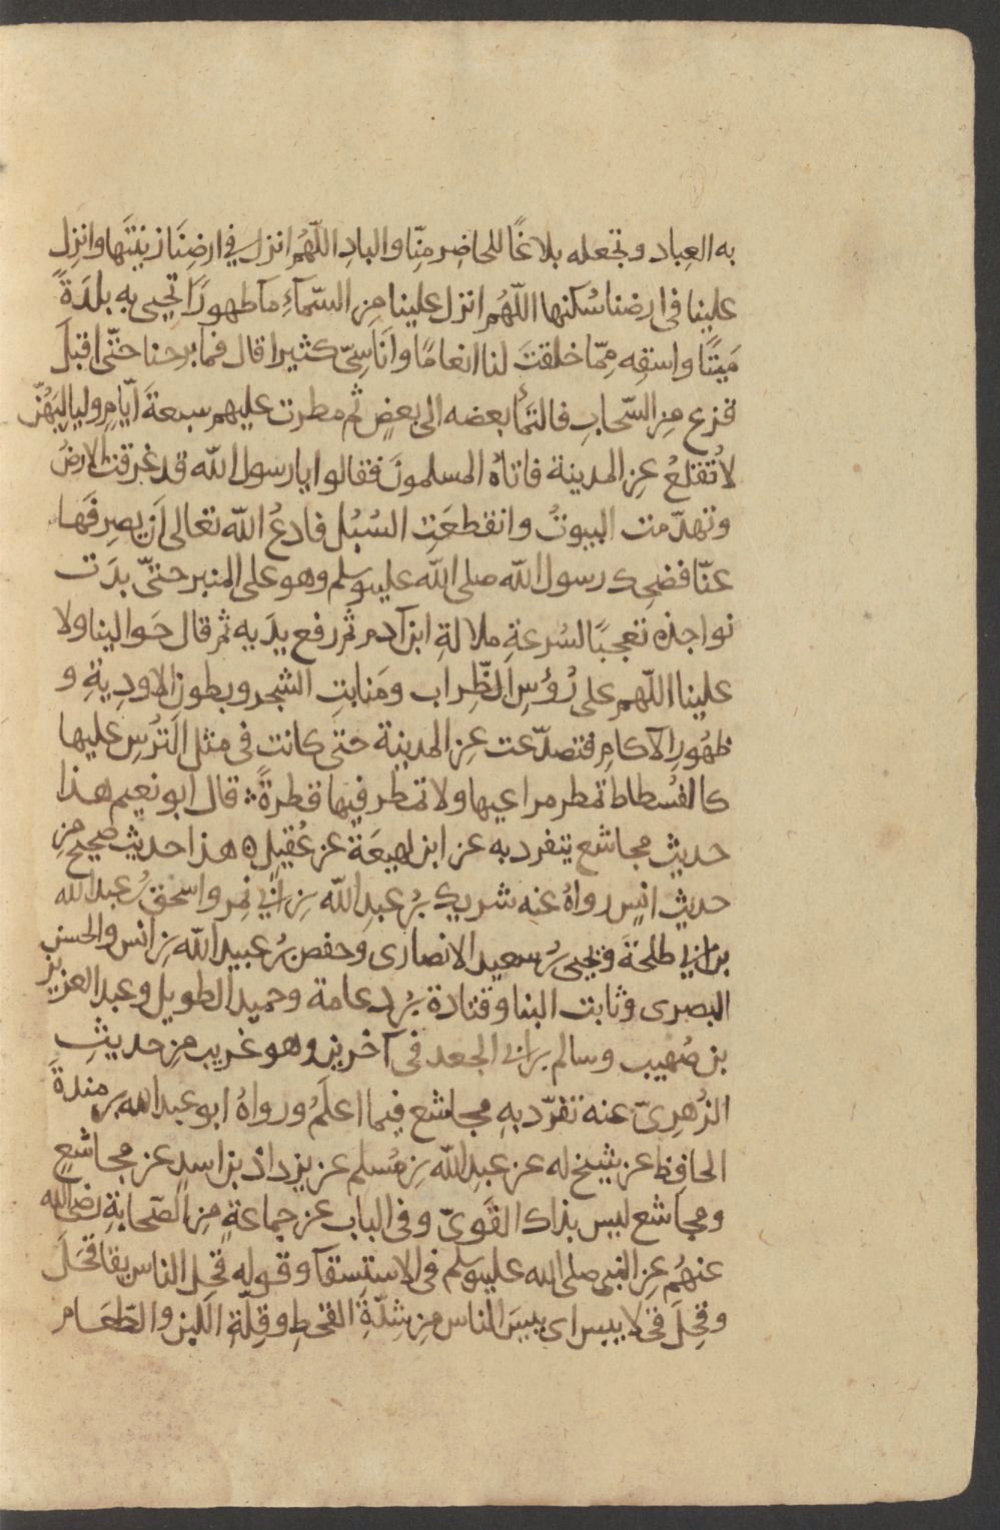 به العِباد وتجعله بلاغًا للحاضِر مِنّا والبادِ اللّهُم انزل في ارضِنَا زينتَها وانزِل
علينا فى ارضنا سُكنها اللّهُم انزل علينا مِن السّمآءِ مآ طهورًا تحيى به بلدَةً
مَيتًا واسقِه مِمّا خلقتَ لنا انعامًا وانَاسِىّ كثيرا قال فما برحنا حتّى اقبلَ
قزع مِن السّحابِ فالتَمأ بعضه الى بعضٍ ثم مطرت عليهم سبعةَ ايّامٍ ولياليَهُنّ
لا تُقتلعُ عن المدينة فاتاهُ المسلمونَ فقالوا يا رسول الله قد غرقت الارضُ
وتهدّمت البيوتُ وانقطعَتِ السُبُل فادعُ الله تعالى اَن يصرِفَها
عنّا فضحِك رسول الله صلى الله عليه وسلم وهو على المنبر حتّى بدَت
نواجذه تعجبًا لسُرعةِ ملالةِ ابن آدم ثم رفع يدَيه ثم قال حَوالينا ولا
علينا اللّهم على رُؤسِ الظِّراب ومَنابتِ الشجر وبطون الاودِيةِ و
ظهُورِ الآكامِ فتصدّعت عن المدينة حتى كانت فى مثل التُرسِ عليها
كالفُسطاط تمطر مراعيها ولا تمطر فيها قطرةً قال ابو نعيم هذا
حديث مجاشع يتفرد به عن ابن لهيعَة عن عُقيلٍ ه هذا حديث صحيح مِن
حديث انسٍ رواهُ عنه شريك بن عبدِ الله بن ابي نمِر واسحق بن عبد الله
بن ابي طلحةَ ويحيى بن سعيد الانصارى وحفص بن عبيد الله بن انس والحسن
البصرى وثابت البنا وقتادة بن دعامة وحميد الطويل وعبد العزيز
بن صُهيب وسالم بن ابي الجعد فى آخرين وهو غريب مِن حديثِ
الزُهرِىّ عنه تفرّد بهِ مجاشع فيما اعلَمُ ورواهُ ابو عبد الله بن مندةَ
الحافِظ عن شيخ له عن عبدِ الله بن مُسلم عن يزداذ بن اسدٍ عن مجاشعٍ
ومجاشع ليس بذاك القَوىّ وفى الباب عن جماعةٍ مِن الصّحابةِ رضى الله
عنهُم عن النبى صلى الله عليه وسلم فى الاستسقآ وقوله قحِل الناس يقا قحَلَ
وقحِلَ فى لا يبس اى يبِسَ الناس مِن شِدّةِ القحطِ وقِلّةِ اللّبن والطّعَام